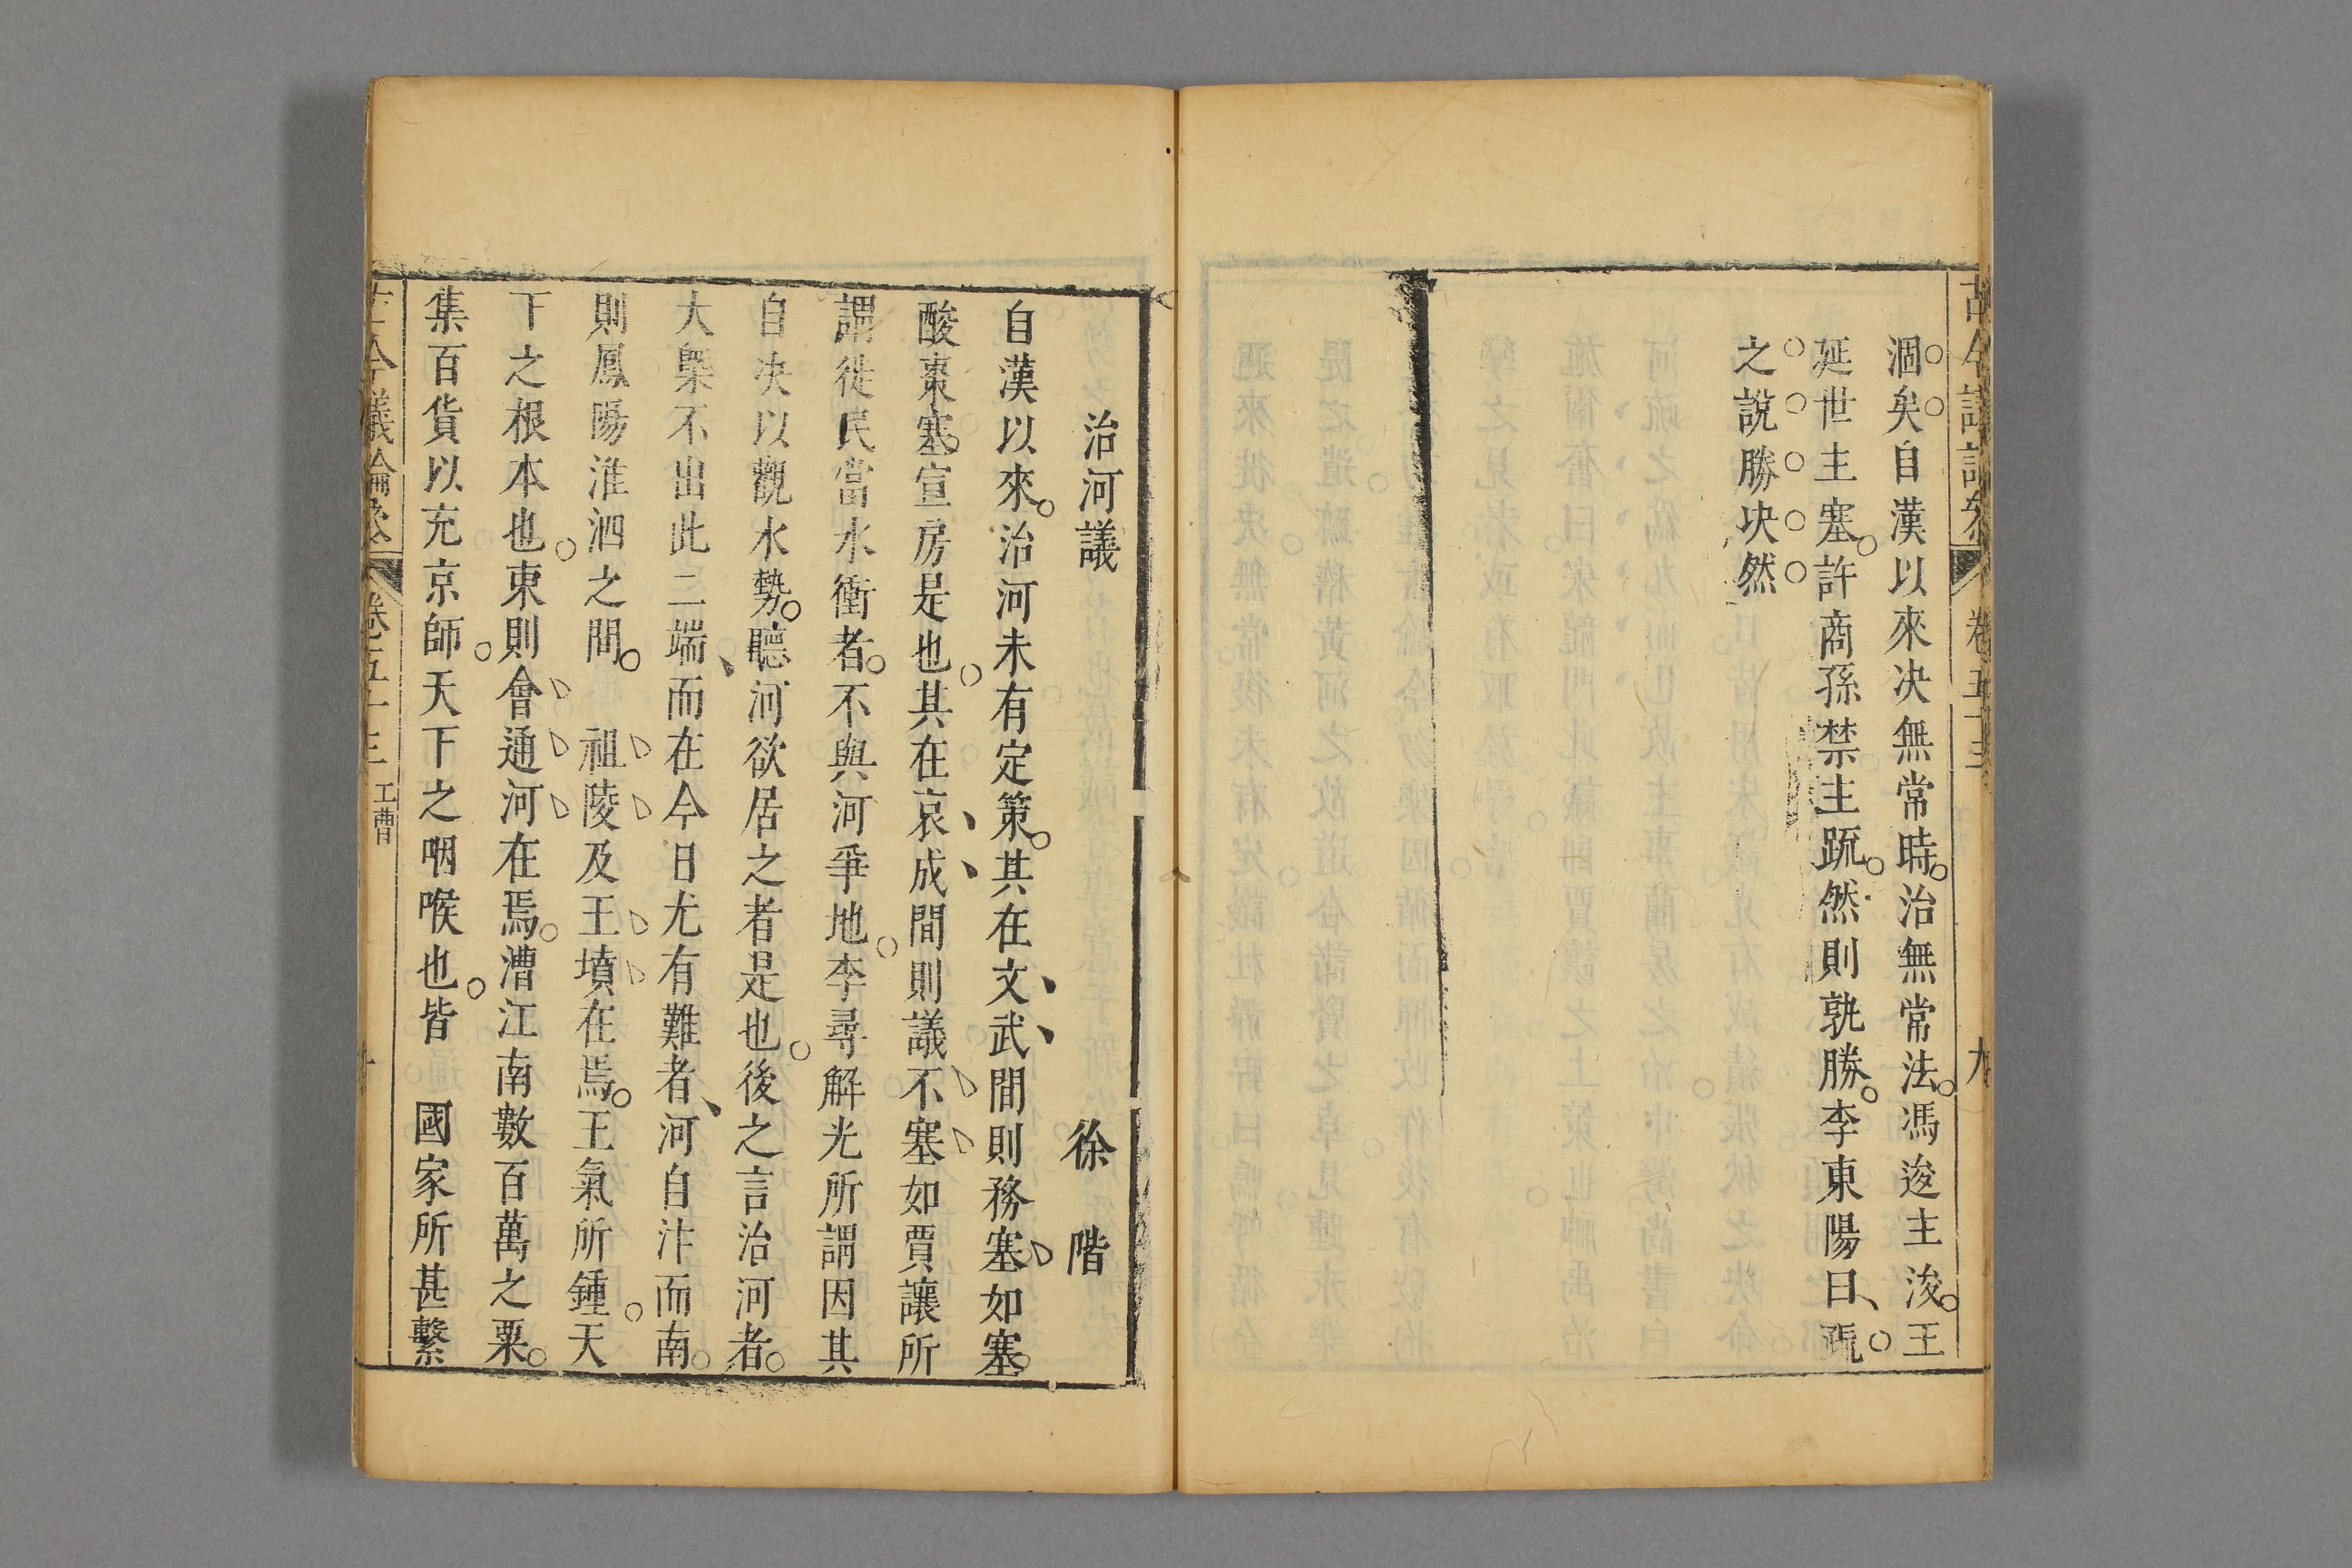 涸矣自漢以來決無常時治無常法馮逡主浚王
延世主塞許商孫禁主䟽然則孰勝李東陽曰䟽
之說勝決然
治河議 徐階
自漢以來治河未有定策其在文武間則務塞如塞
酸棗塞宣房是也其在哀成間則議不塞如賈讓所
謂徙民當水衝者不與河爭地李尋解光所謂因其
自決以觀水勢聽河欲居之者是也後之言治河者
大槩不出此二端而在今日尤有難者河自汴而南
則鳳陽淮泗之間 祖陵及王墳在焉王氣所鍾天
下之根本也東則會通河在焉漕江南數百萬之粟
集百貨以充京師天下之咽喉也皆 國家所甚繫
卷五十三 工曹